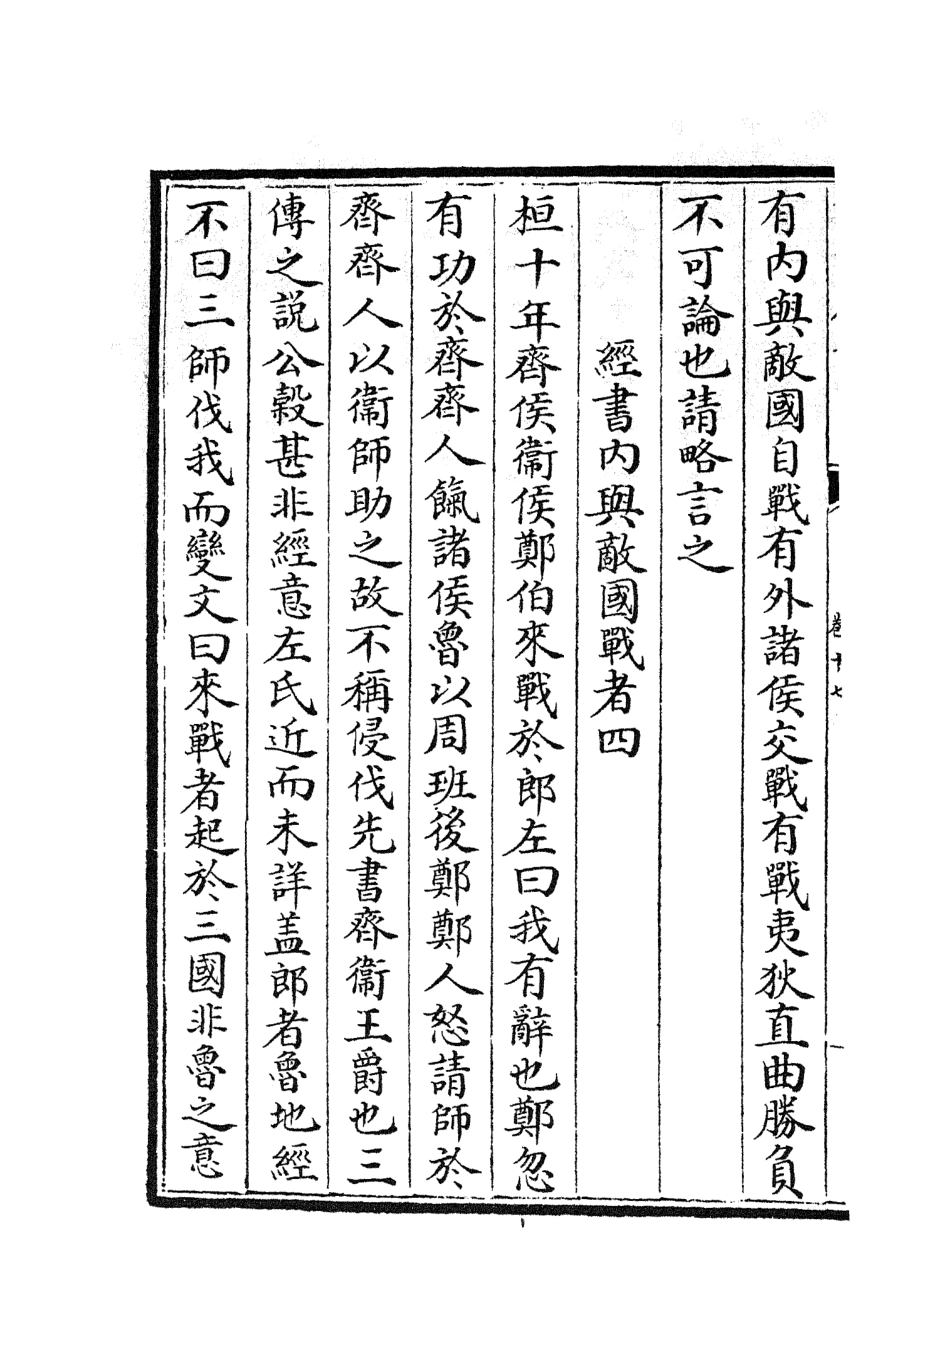 有内與敵國自戰有外諸侯交戰有戰夷狄直曲勝負
不可論也請略言之
經書内與敵國戰者四
桓十年齊侯衞侯鄭伯來戰於郎左曰我有辭也鄭忽
有功於齊齊人餼諸侯魯以周班後鄭鄭人怒請師於
齊齊人以衞師助之故不稱侵伐先書齊衞王爵也三
傳之説公穀甚非經意左氏近而未詳盖郎者魯地經
不曰三師伐我而變文曰來戰者起於三國非魯之意
卷十七